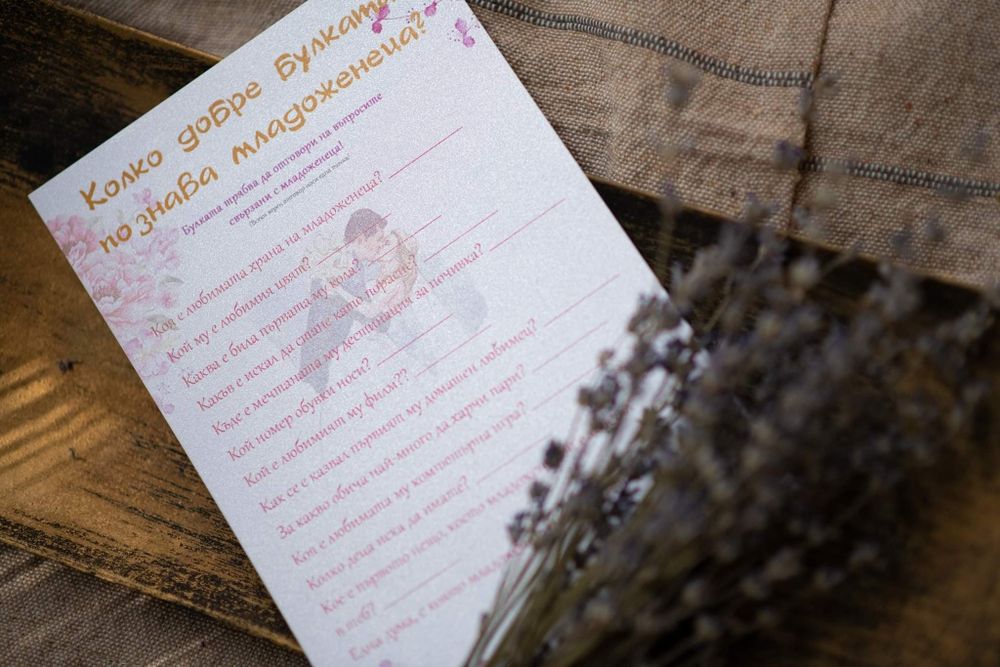 Колко добре Булката
познава младоженеца?
Булката трябва да отговори на въпросите
свързани с младоженеца!
Коя е любимата храна на младоженеца?
Кой му е любимия цвят?
Каква е била първата му кола?
Какъв е искал да стане като порасне?
Къде е мечтаната му дестинация за почивка?
Кой номер обувки носи?
Кой е любимият му филм??
Как се е казвал първият му домашен любимец?
За какво обича най-много да харчи пари?
Коя е любимата му компютърна игра?
Колко деца иска да имате?
Кое е първото нещо, което
в теб?
Една дума, с която